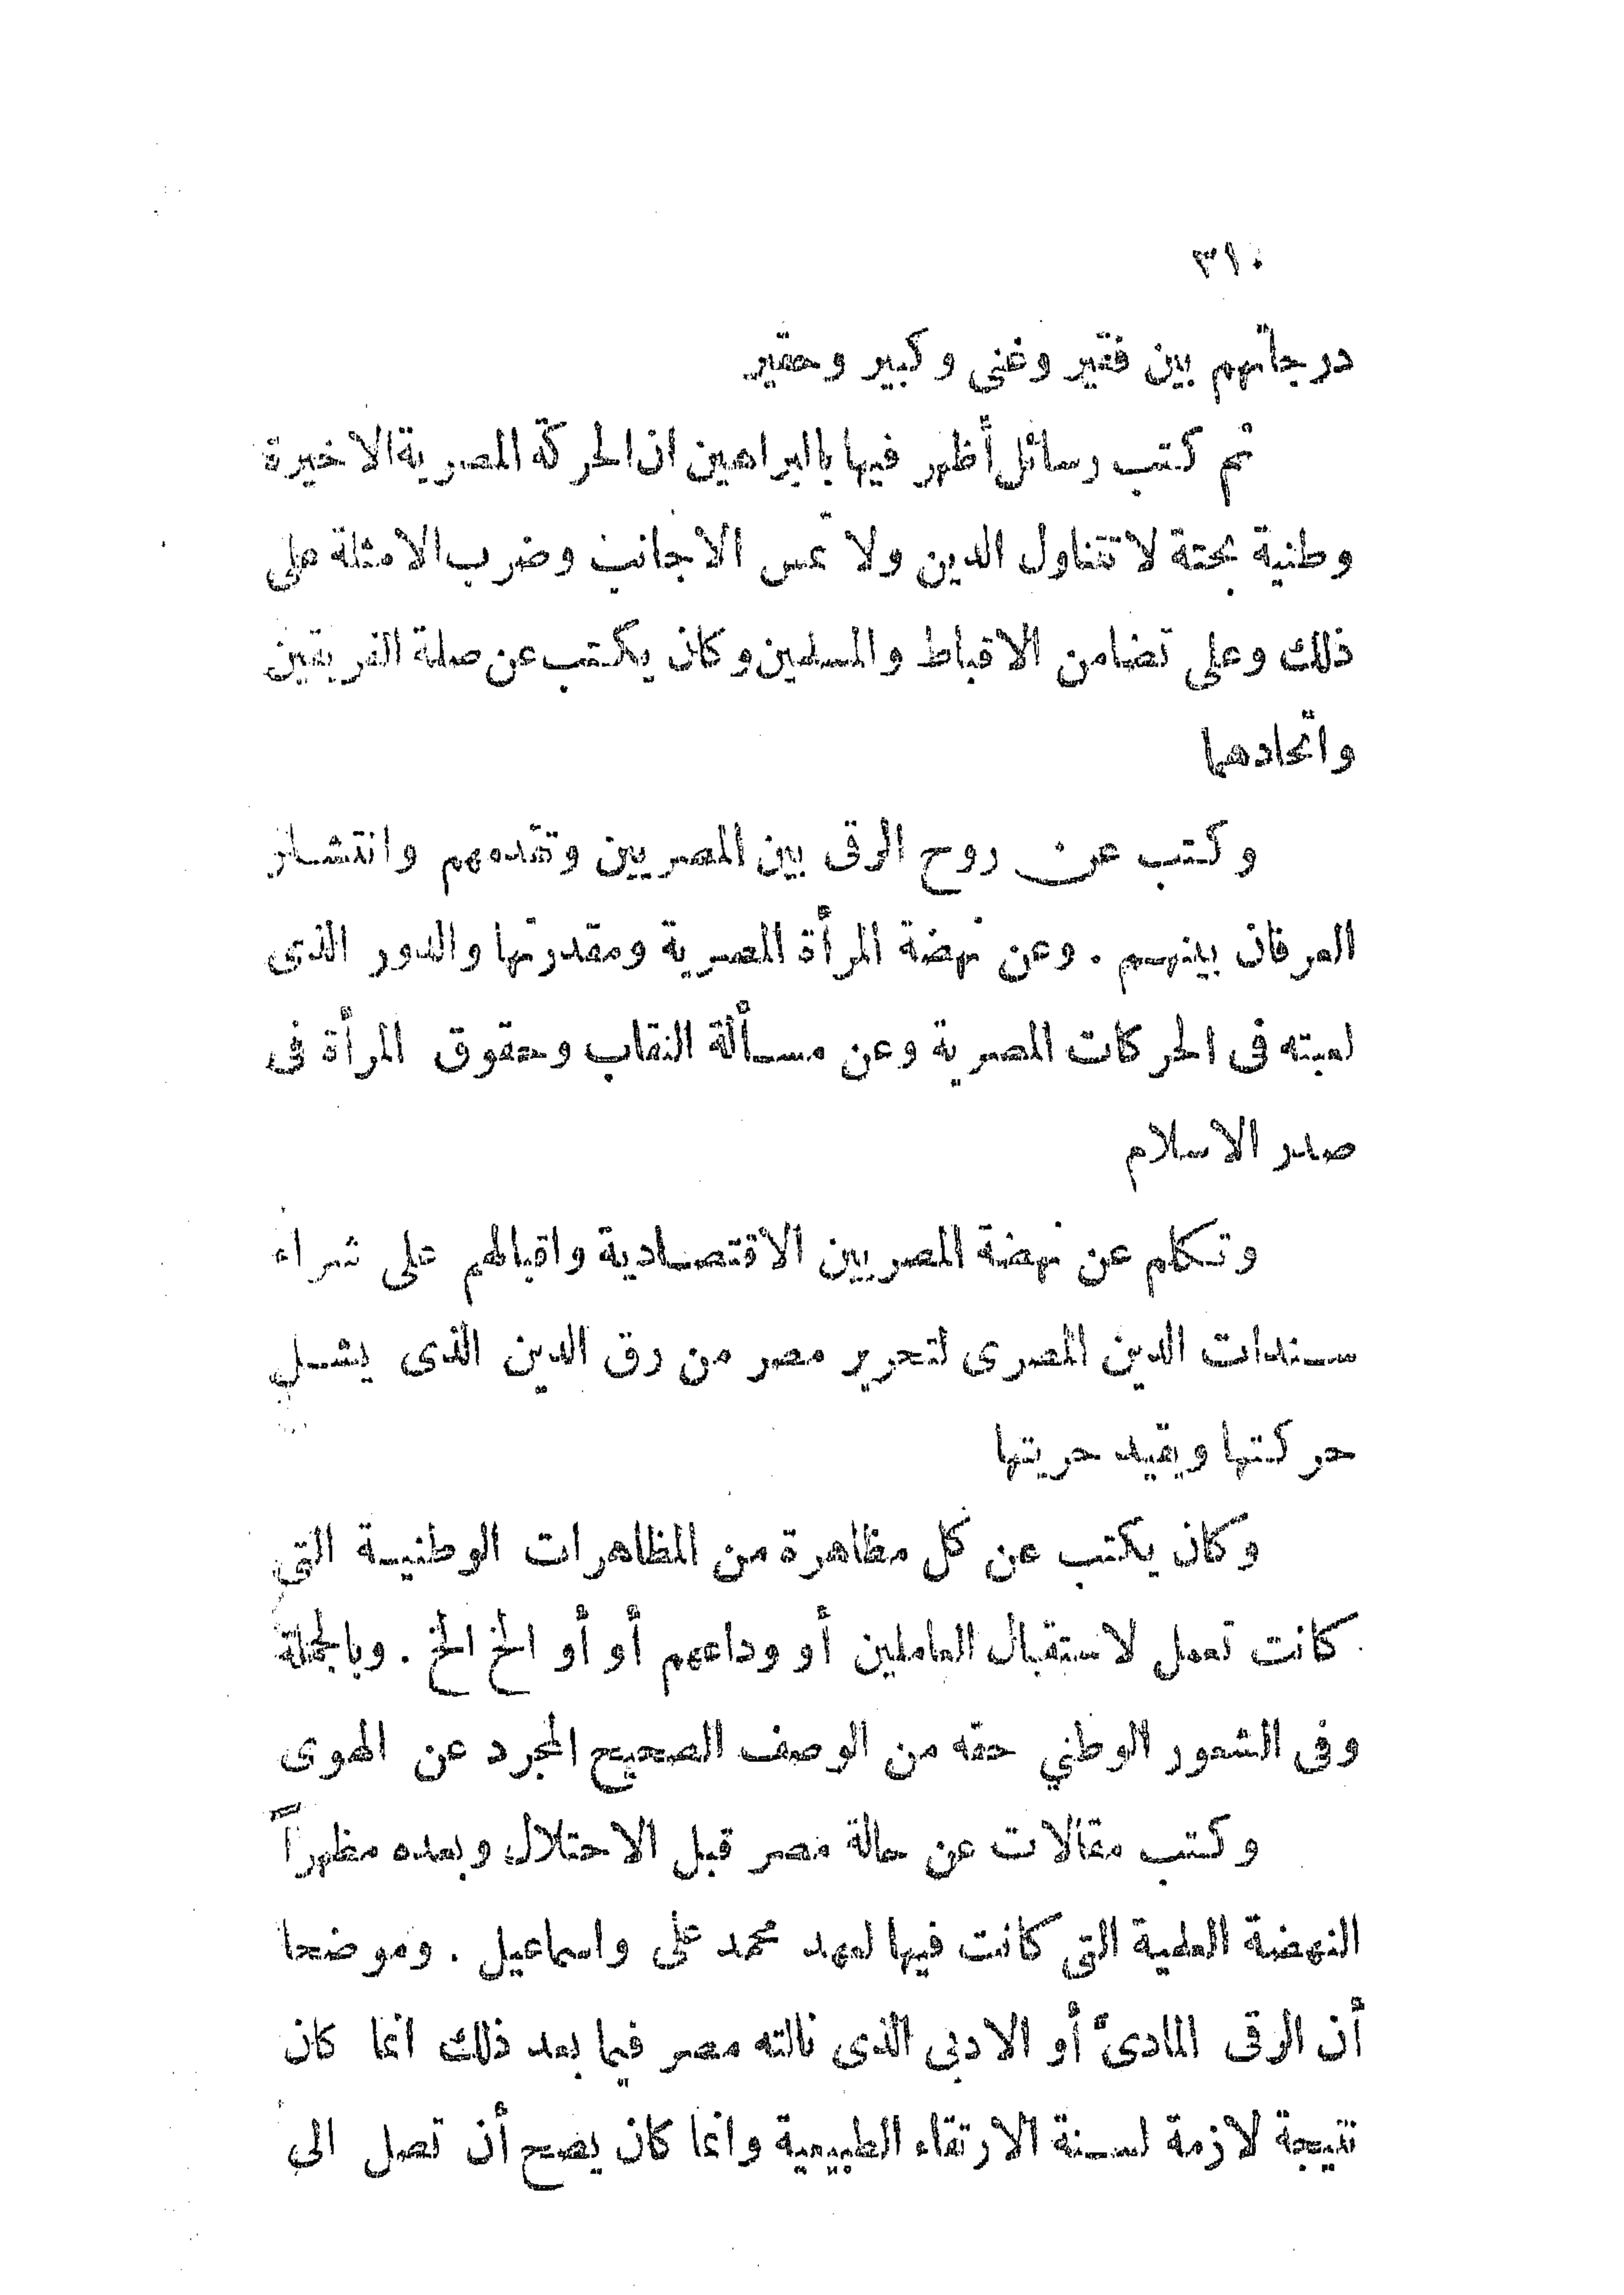 ٣١٠
درجاتهم بين فقير وغنى وكبير وحقير
ثم كتب رسائل أظهر فيها بالبراهين ان الحركة المصرية الاخيرة
وطنية بحتة لا تتناول الدين ولا تمس الاجانب وضرب الامثلة على
ذلك وعلى تضامن الاقباط والمسلمين وكان يكتب عن صلة الفريقين
واتحادهما
وكتب عن روح الرقى بين المصريين وتقدمهم وانتشار
العرفان بينهم . وعن نهضة المرأة المصرية ومقدرتها والدور الذى
لعبته فى الحركات المصرية وعن مسألة النقاب وحقوق المرأة فى
صدر الاسلام
وتكلم عن نهضة المصريين الاقتصادية واقبالهم على شراء
سندات الدين المصرى لتحرير مصر من رق الدين الذى يشل
حركتها ويقيد حريتها
وكان يكتب عن كل مظاهرة من المظاهرات الوطنية التى
كانت تعمل لاستقبال العاملين أو وداعهم أو أو الخ الخ . وبالجملة
وفى الشعور الوطني حقه من الوصف الصحيح المجرد عن الهوى
وكتب مقالات عن حالة مصر قبل الاحتلال وبعده مظهراً
النهضة العلمية التى كانت فيها لعهد محمد على واسماعيل . وموضحا
أن الرقى المادى أو الادبى الذى نالته مصر فيما بعد ذلك انما كان
نتيجة لازمة لسنة الارتقاء الطبيعية وانما كان يصح أن تصل الى